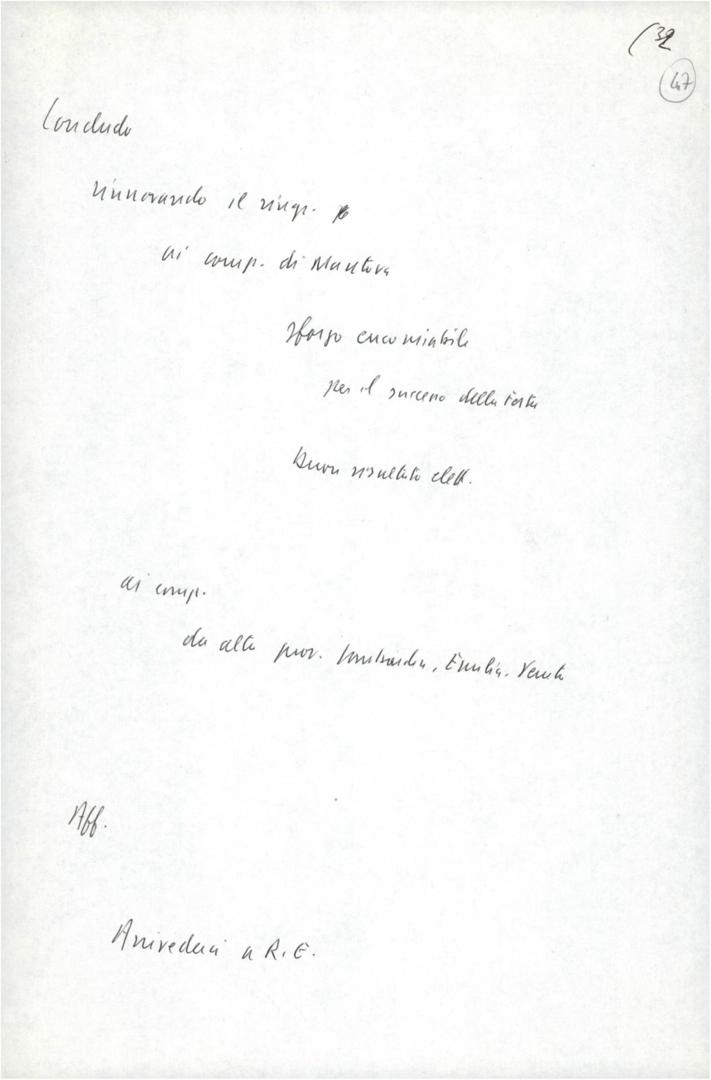 (32
47
Concludo
rinnovando il ringr.
ai comp. di Mantova
sforzo encomiabile
per il successo della festa
buon risultato elett.
ai comp.
da altre prov. Lombardia, Emilia, Veneto
Aff.
Arrivederci a R.E.